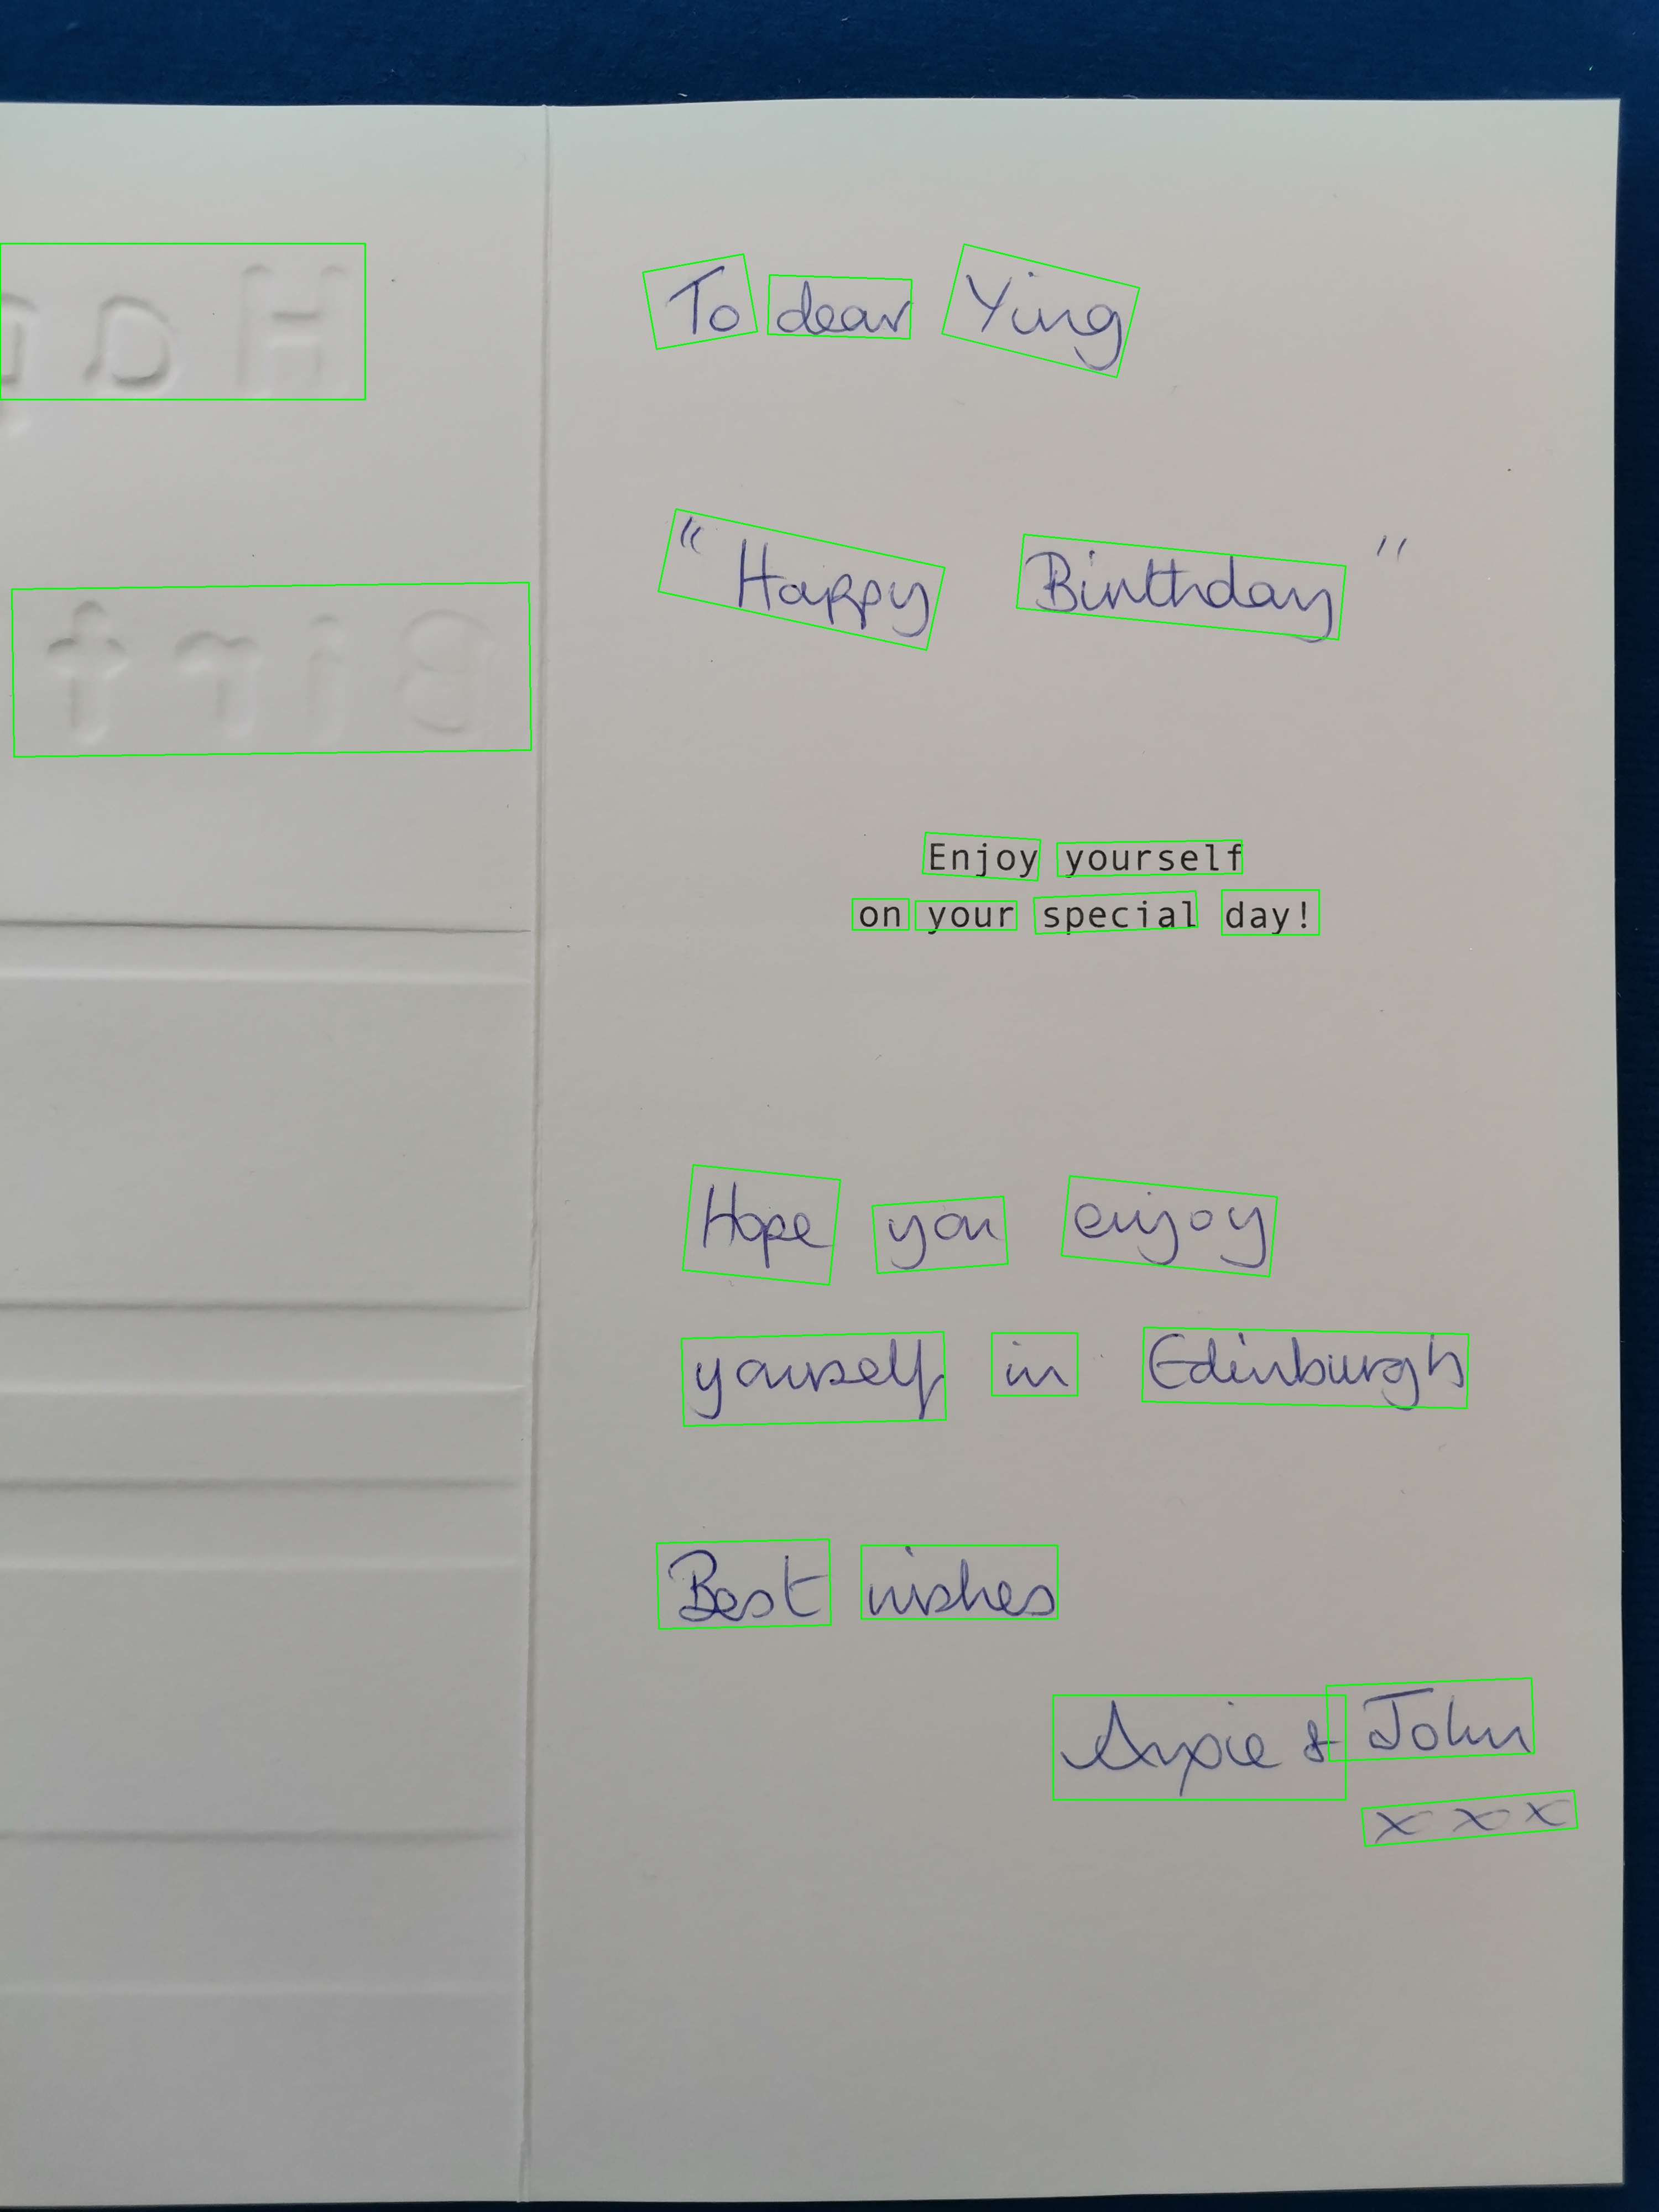 To dear Ying
"Happy Birthday"
Enjoy yourself
on your special day!
Hope you enjoy
yourself in Edinburgh
Best wishes
& John
xxx